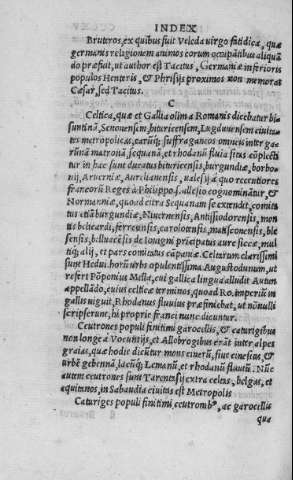 INDEX
Bruteros, ex quibus fuit Veleda uirgo fatidica, quæ
germanis religionem animos eorum occupātibus aliquā
do præfuit, ut author est Tacitus, Germaniæ inferioris
populos Henteris, & Phrisijs proximos non memorat
Cæsar, sed Tacitus.
C
Celtica, quæ et Gallia olim a Romanis dicebatur bi
suntinā, Senonensem, bituricensem, Lugdunensem ciuita
tes metropoliticas, earūq; suffraganeos omneis inter gae
rūnā matronā, sequanā, et rhodanū fluuia sitos cōplecti
tur in hac sunt ducatus bituricensis, burgundiæ, borbo
nij, Aruerniæ, Aurelianensis, ualesij à quo recentiores
francorū Reges à Philippo. f. allesio cognominātur, &
Normaniæ, quoad citra Sequanam se extendit, comita
tus etiā burgundiæ, Niuernensis, Antissiodorensis, mon
tis belicardi, ferretensis, carolotensis, matisconensis, ble
sensis, belluacēsis de iouigni prīcipatus aure siccæ, mul
tiq; alij, et pars comitatus cāpaniæ. Celtarum clarissimi
sunt Hedui. horū urbs opulentissima Augustodunum, ut
refert Pōponius Mella, cui gallica lingua alludit Autun
appellādo, cuius celticæ terminos, quoad Ro. imperiū in
gallis uiguit, Rhodanus fluuius præfiniebat, ut nōnulli
scripserunt, hi proprie franci nunc dicuntur.
Ceutrones populi finitimi garocellis, & caturigibus
non longe a Vocūtijs, et Allobrogibus erāt inter alpes
graias, quæ hodie dicūtur mons cinerū, siue cinesius, &
urbē gebennā, lacūq; Lemanū, et rhodanū fluuiū. Nūc
autem ceutrones sunt Tarentasij extra celtas, belgas, et
aquitanos, in Sabaudia ciuitas est Metropolis
Caturiges populi finitimi ceutromb⁹, ac garocellis
quæ